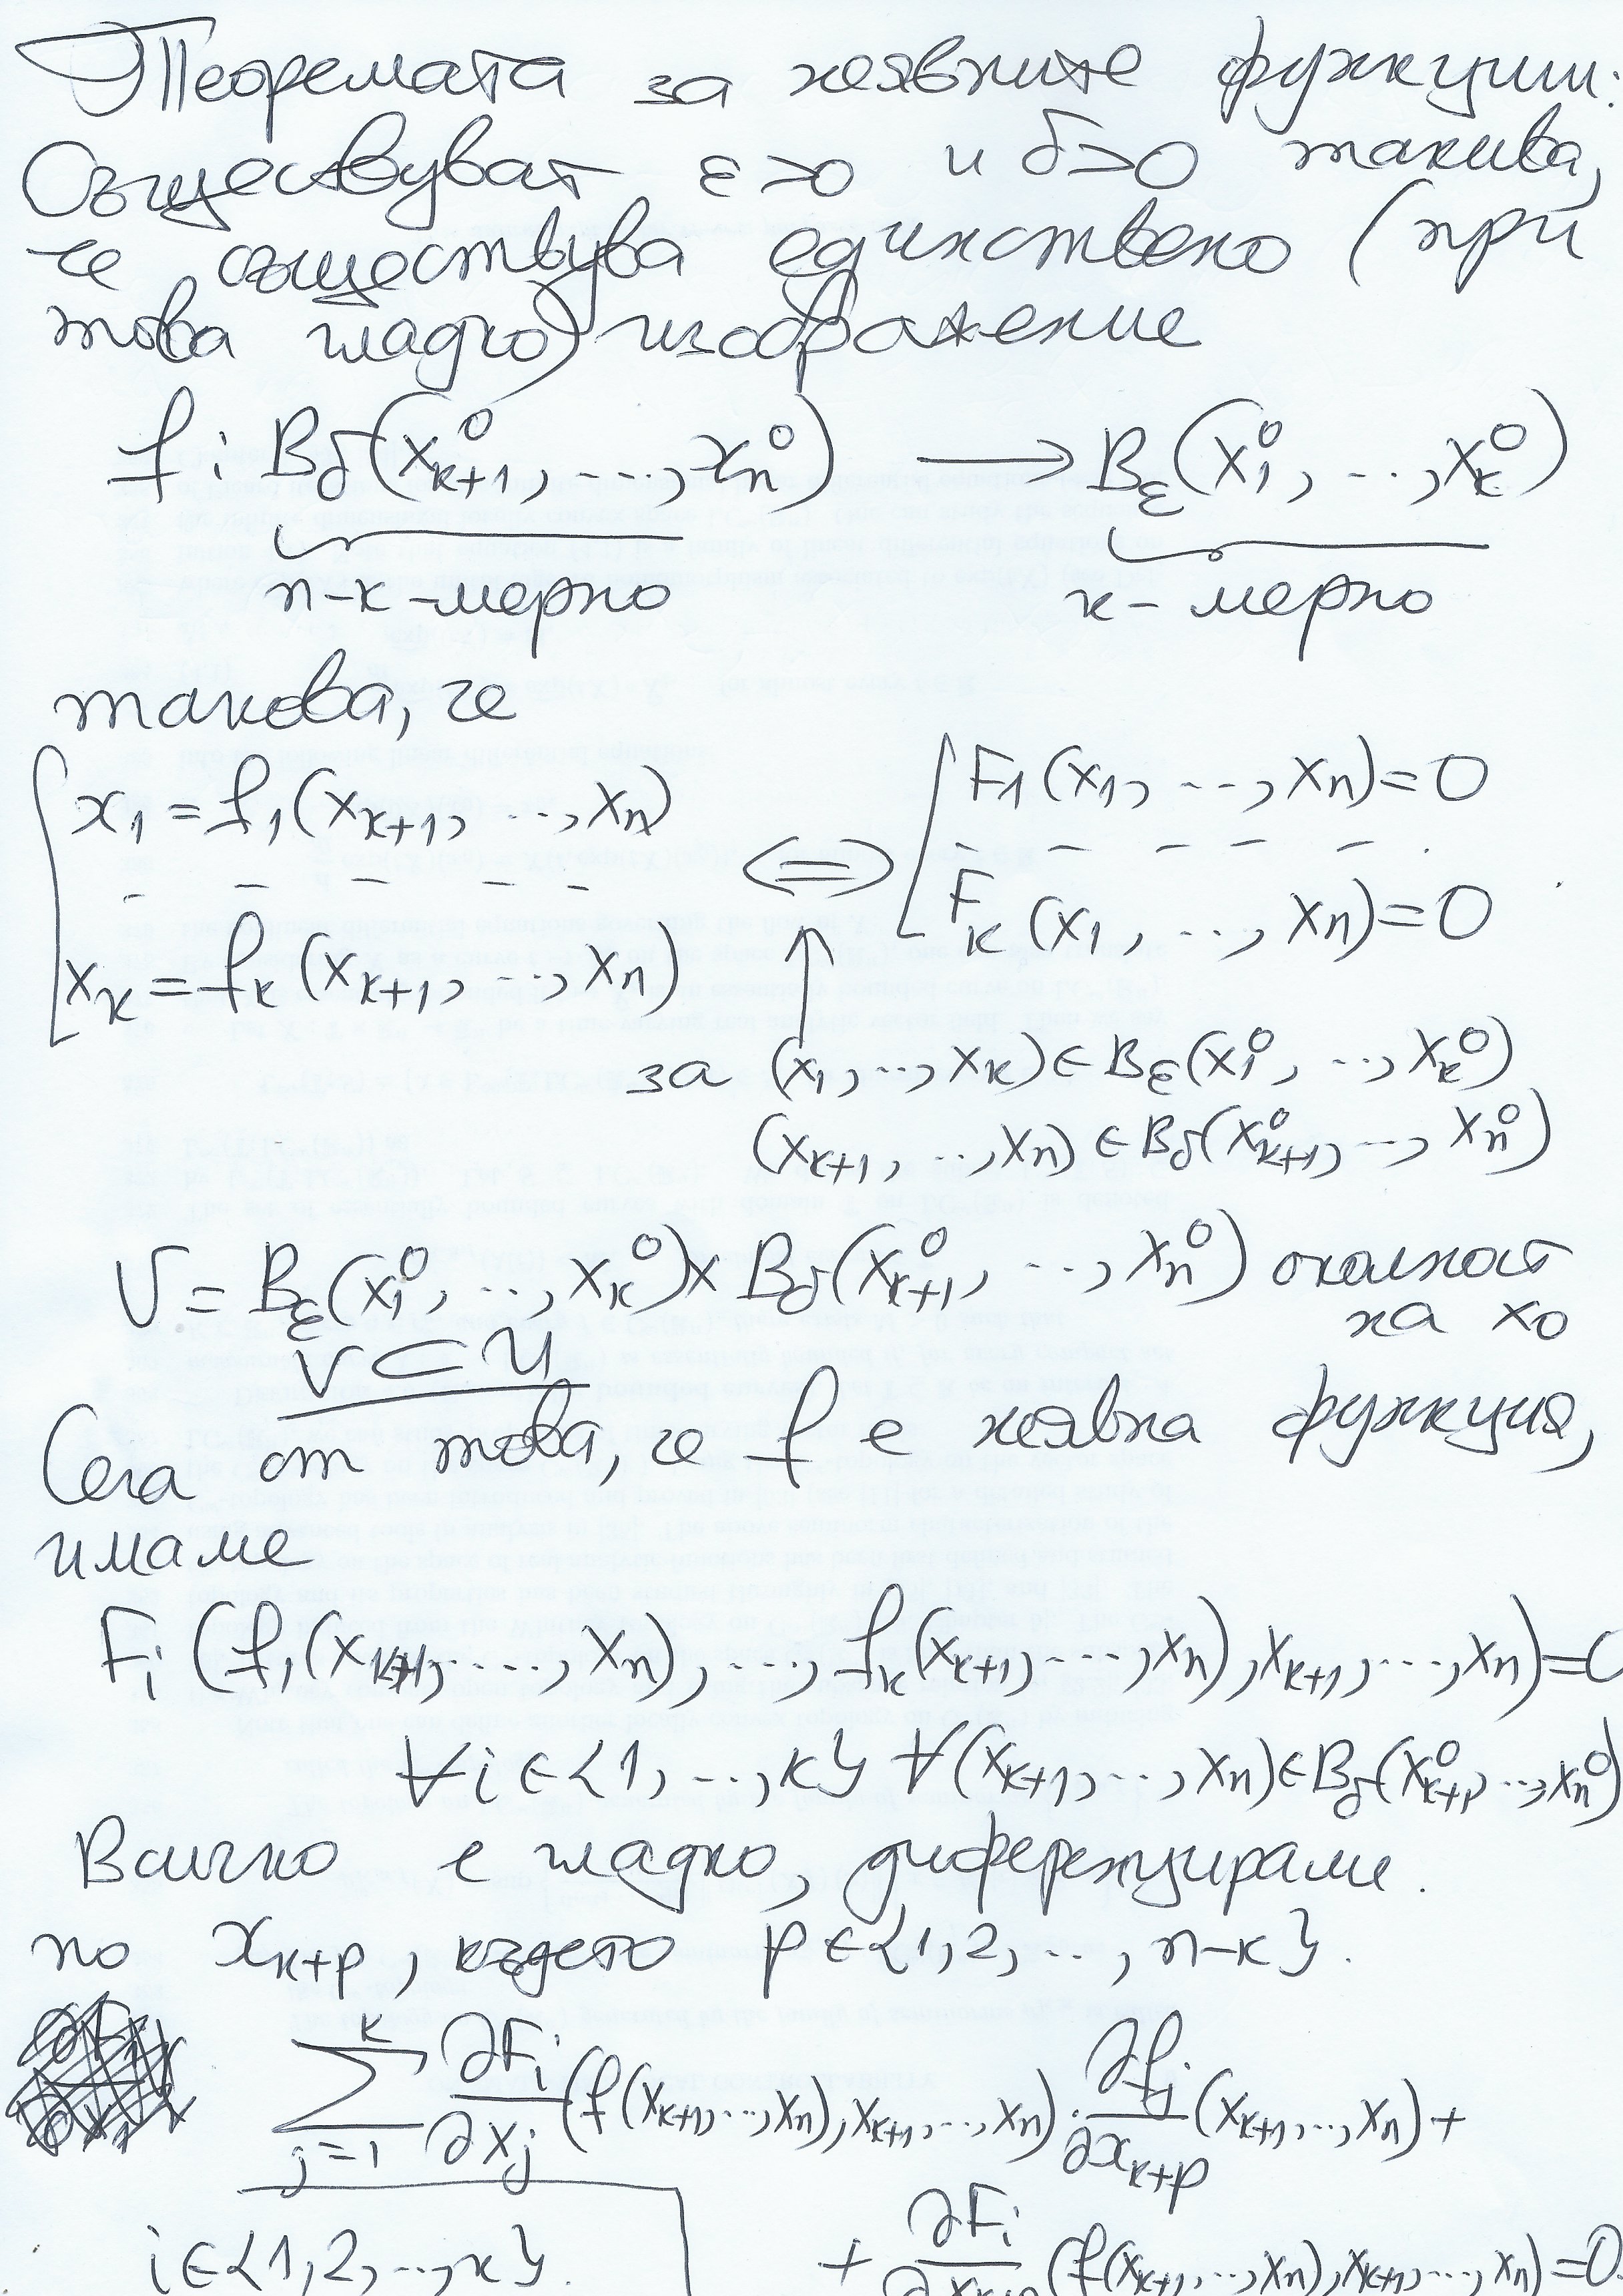 Теоремата за неявните функции:
Съществуват ε>0 и δ>0 такива,
че съществува единствено (при
това гладко) изображение
f : B_δ(x⁰_{k+1}, ..., x⁰_n) ⟶ B_ε(x⁰_1, ..., x⁰_k)
n-k-мерно к- мерно
такова, че
x_1 = f_1(x_{k+1}, ..., x_n) ⟺ F_1(x_1, ..., x_n)=0
- - - - - - - - - -
x_k = f_k(x_{k+1}, ..., x_n) F_k(x_1, ..., x_n)=0
↑
за (x_1, ..., x_k) ∈ B_ε(x⁰_1, ..., x⁰_k)
(x_{k+1}, ..., x_n) ∈ B_δ(x⁰_{k+1}, ..., x⁰_n)
V = B_ε(x⁰_1, ..., x⁰_k) × B_δ(x⁰_{k+1}, ..., x⁰_n) околност
на x_0
V ⊂ U
Сега от това, че f е неявна функция,
имаме
F_i (f_1(x_{k+1}, ..., x_n), ..., f_k(x_{k+1}, ..., x_n), x_{k+1}, ..., x_n)=0
∀i ∈ {1, ..., k} ∀(x_{k+1}, ..., x_n) ∈ B_δ(x⁰_{k+1}, ..., x⁰_n)
Всичко е гладко, диференцираме
по x_{k+p}, където p ∈ {1, 2, ..., n-k}.
∑_{j=1}^{k} ∂F_i/∂x_j (f(x_{k+1}, ..., x_n), x_{k+1}, ..., x_n) · ∂f_j/∂x_{k+p} (x_{k+1}, ..., x_n) +
+ ∂F_i/∂x_{k+p} (f(x_{k+1}, ..., x_n), x_{k+1}, ..., x_n)=0
i ∈ {1, 2, ..., k}.